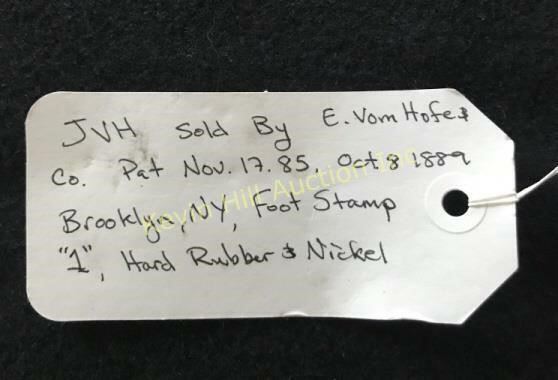 JVH Sold By E. Vom Hofe &
Co. Pat Nov. 17. 85, Oct 8 1889
Brooklyn, NY, Foot Stamp
"1", Hard Rubber & Nickel
Kevin Hill Auction Inc